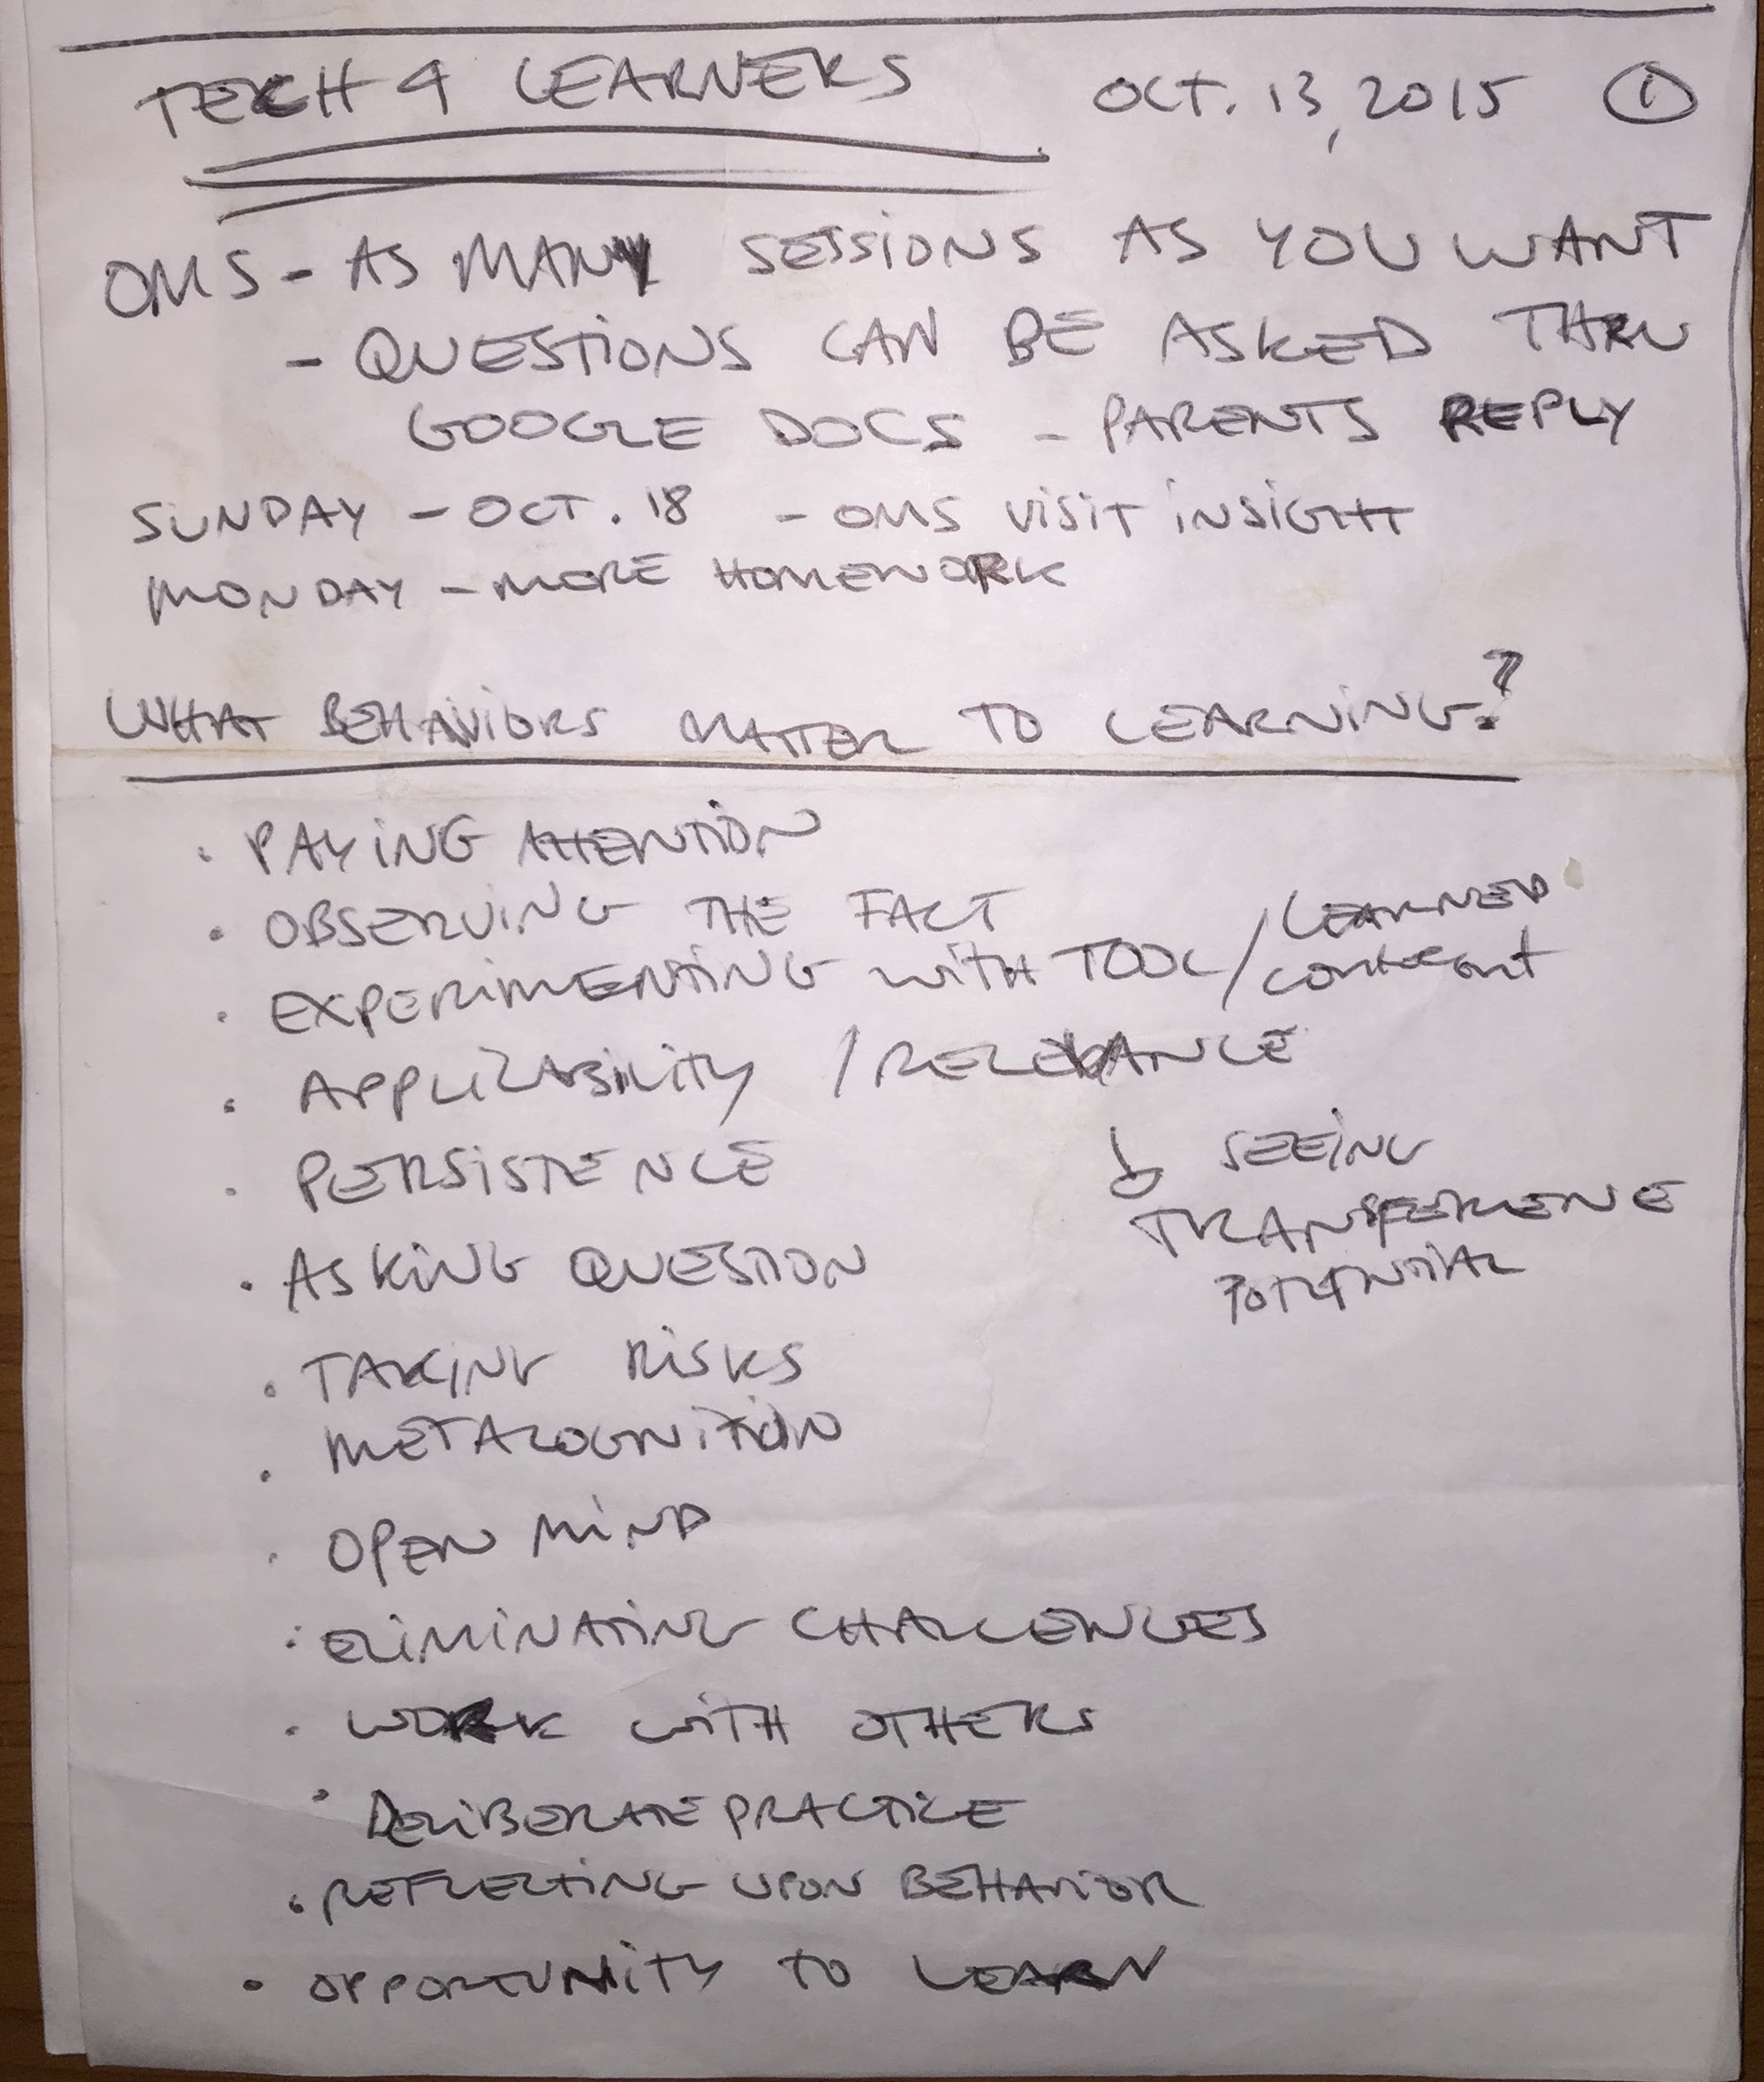 TECH 4 LEARNERS OCT. 13, 2015 ①
OMS - AS MANY SESSIONS AS YOU WANT
- QUESTIONS CAN BE ASKED THRU
GOOGLE DOCS - PARENTS REPLY
SUNDAY - OCT. 18 - OMS VISIT INSIGHT
MONDAY - MORE HOMEWORK
WHAT BEHAVIORS MATTER TO LEARNING?
· PAYING ATTENTION
· OBSERVING THE FACT
· EXPERIMENTING WITH TOOL / LEARNED
· APPLICABILITY / RELEVANCE
· PERSISTENCE
SEEING
TRANSFERENCE
POTENTIAL
· ASKING QUESTION
· TAKING RISKS
· METACOGNITION
· OPEN MIND
· ELIMINATING CHALLENGES
· WORK WITH OTHERS
· DELIBERATE PRACTICE
· REFLECTING UPON BEHAVIOR
· OPPORTUNITY TO LEARN